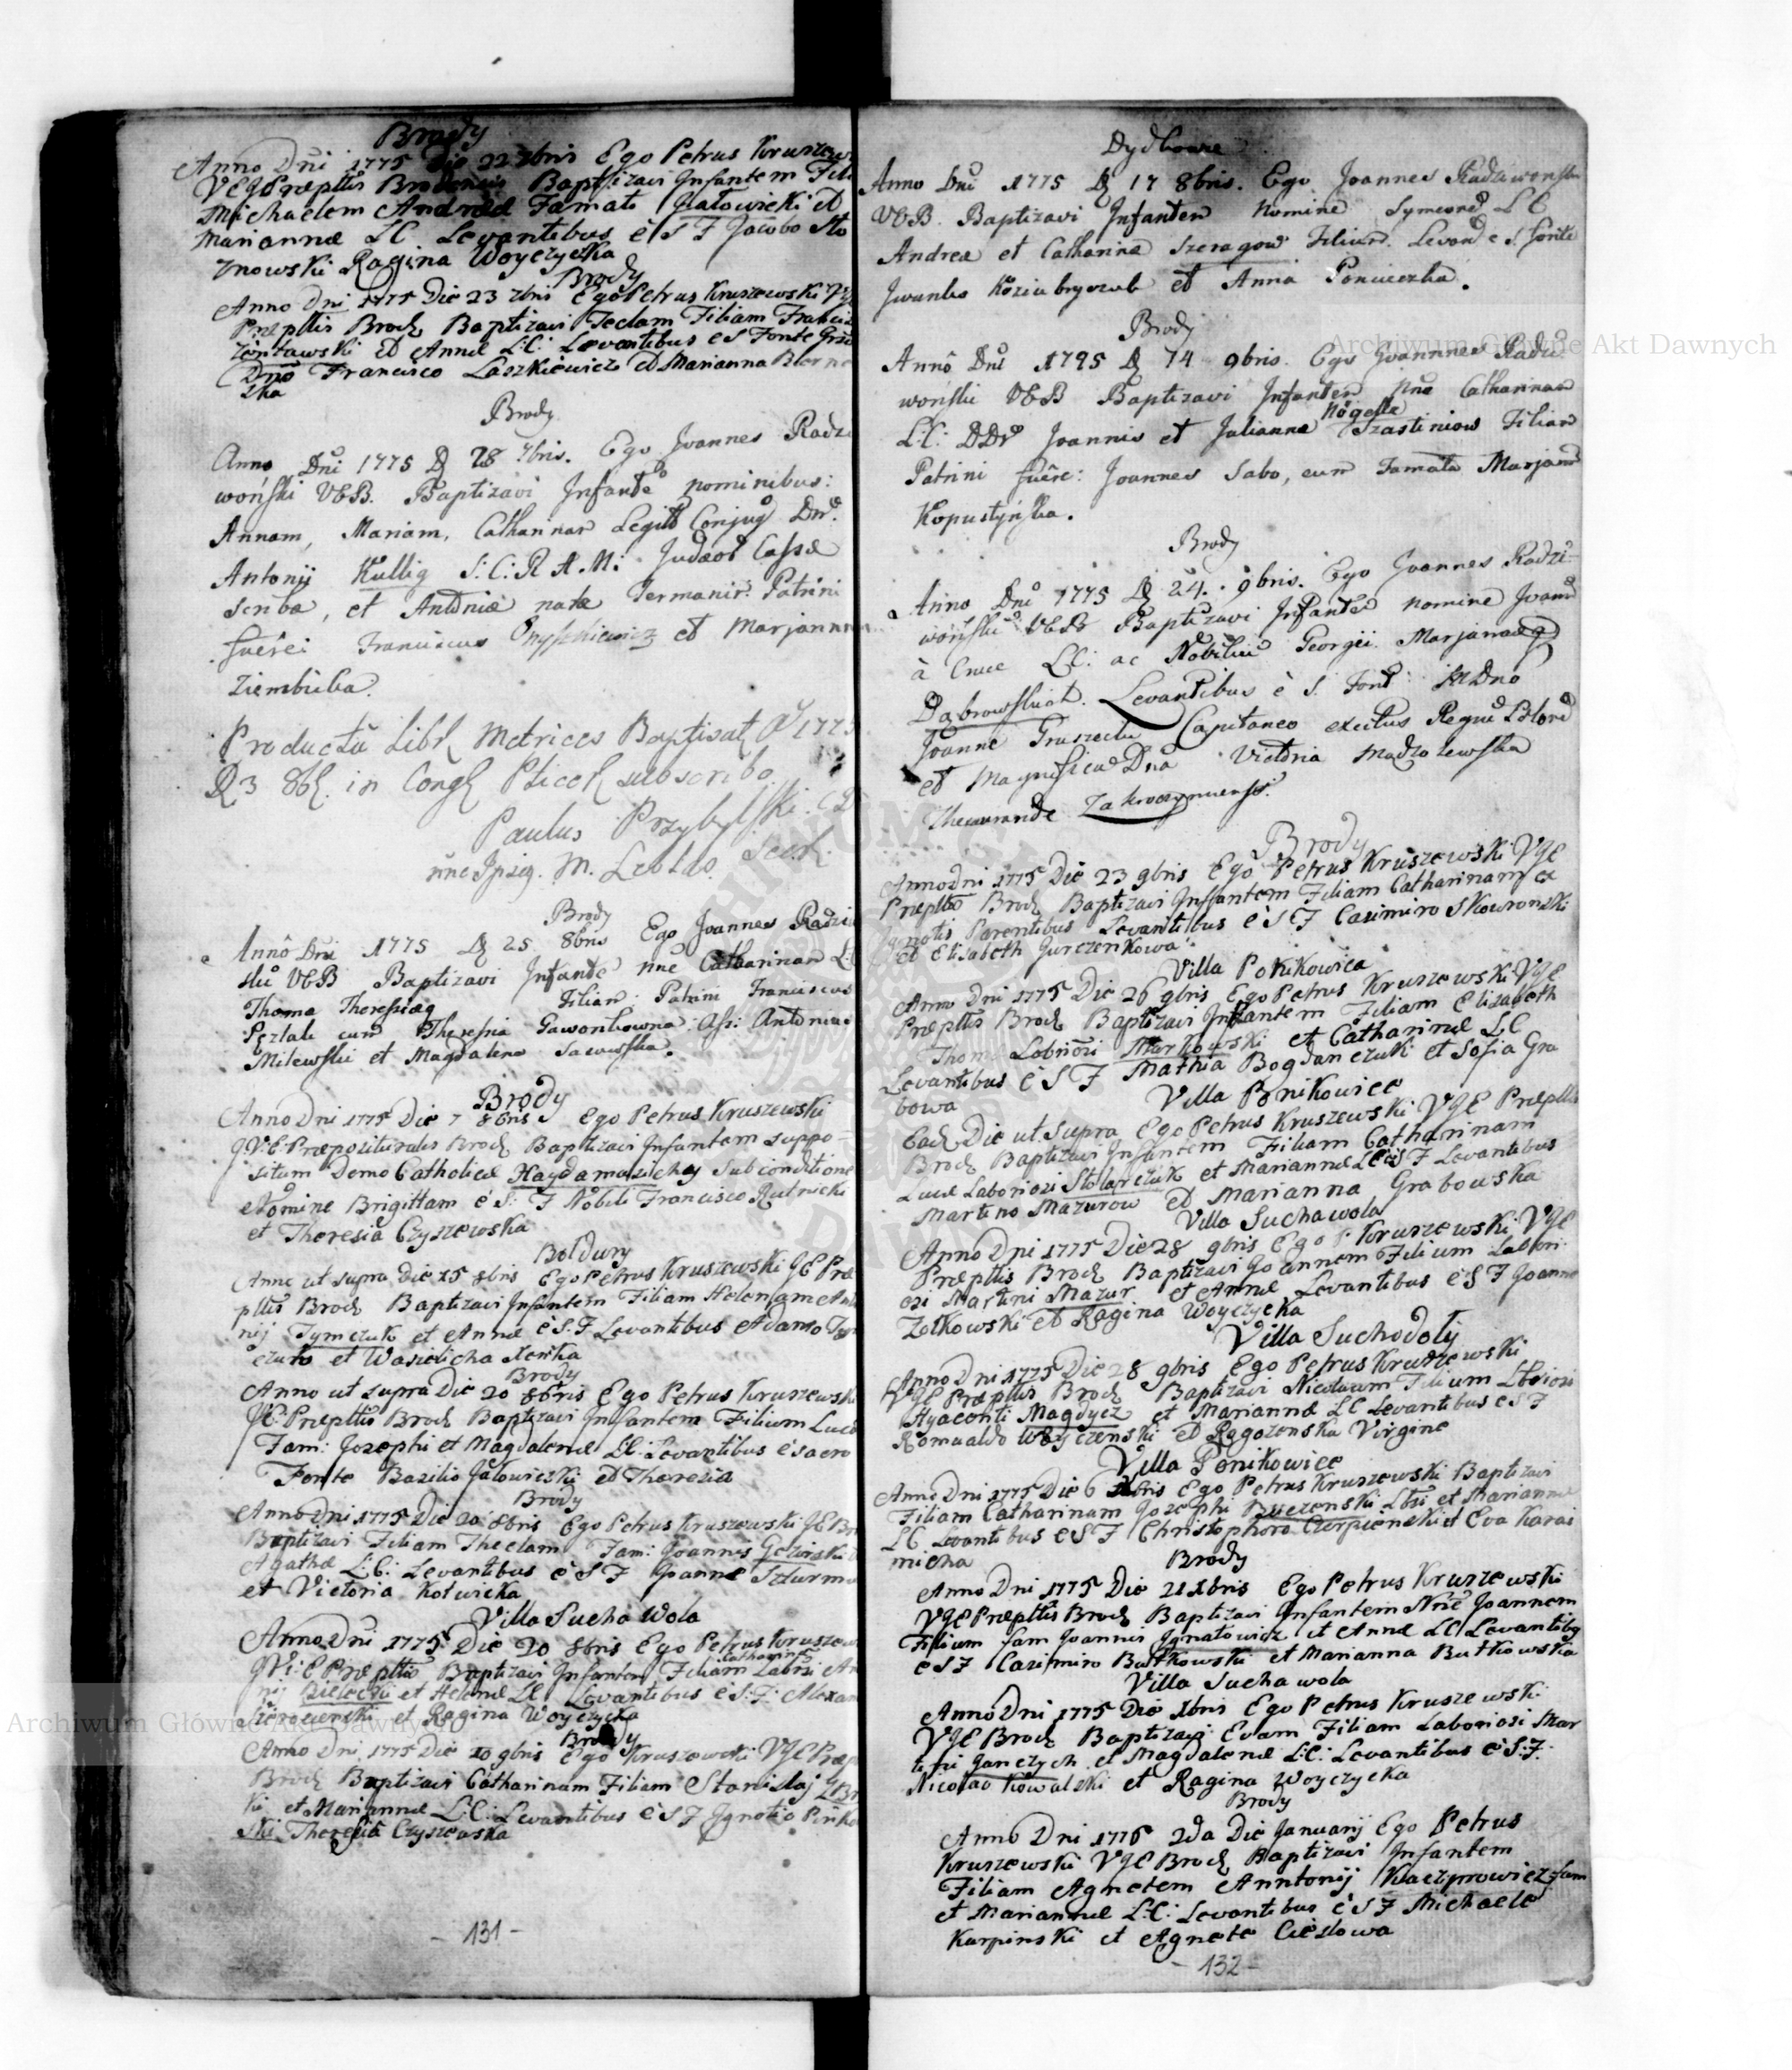 Brody
Anno Dni 1775 Die 22 7bris Ego Petrus Kruszews
VGE Præpttis Brodensis Baptizavi Infantem Fili
Michaelem Andreæ Famati Jatowicki et
Mariannæ LC Levantibus è S F Jacobo Sto
znowski Ragina Woyczycka
Brody
Anno Dni 1775 Die 23 7bris Ego Petrus Kruszewski
Præpttis Brod Baptizavi Teclam Filiam Francis
et Annæ L:C: Levantibus e S Fonte
Dno Francisco Laszkiewicz et Marianna
ska
Brody
Anno Dni 1775 D 28 7bris. Ego Joannes Radzi
woński VCB. Baptizavi Infante nominibus:
Annam, Mariam, Catharinam Legit Conjug Dnr.
Antonij Kullig S:C:R A.M: Judæor Cassæ
Scribæ, et Antoniæ natæ Germanir. Patrini
fuêre: Franciscus Onyszkiewicz et Marjanna
Ziembicka.
Productu Libr Metrices Baptisat A 1775
D 3 8br. in Congr subscribo
Paulus Przybylski
Brody
Annô Dni 1775 D 25 8bris Ego Joannes Radzi
ski VCB Baptizavi Infante nne Catharinam L:C
Thoma Theressiæq Filiam: Patrini Franciscus
cum Theressia Gawonkowna. Ass: Antonius
Milewski et Magdalena
Brody
Anno Dni 1775 Die 7 8bris Ego Petrus Kruszewski
GVE Præpositturalis Brod Baptizavi Infantem suppo-
situm Domo Catholicæ Haydamaszichey Sub conditione
Nomine Brigittam è S: F Nobili Francisco Rutnicki
et Theresia Czyszewska
Boldury
Anno ut supra Die 15 8bris Ego Petrus Kruszewski GE Præ
pttis Brod Baptizavi Infantem Filiam Helenam Anto
nij Tymczuk et Annæ è S.F Levantibus Adamo
czuk et Waszelicha Xenka
Brody
Anno ut supra Die 20 8bris Ego Petrus Kruszewski
GE Præpttis Brod Baptizavi Infantem Filium
Fam: Josephi et Magdalenæ LC: Levantibus è sacro
Fonte Bazilio Jatowiczki et Theresia
Brody
Anno Dni 1775 Die 20 8bris Ego Petrus Kruszewski GE
Baptizavi Filiam Theclam Fam: Joannis
Agathæ L:C: Levantibus è S F Joanne
et Victoria Kotwicka
Villa Sucha Wola
Anno Dni 1775 Die 20 8bris Ego Petrus Kruszew
Catharina
GVE Præpttis Baptizavi Infantem Filiam
nij Bielecki et Helenæ LC Levantibus è S: F: Alexan
et Ragina Woyczycka
Brody
Anno Dni 1775 Die 20 9bris Ego Kruszewski VGE Præp
Brod Baptizavi Catharinam Filiam Stanislaj
ki et Mariannæ L:C: Levantibus è S F Ignatio
ski Theresia Czyszewska
- 131 -
Anno Dni 1775 D 17 8bris. Ego Joannes Radziwonski
VCB. Baptizavi Infantem Nomine Symeone LC
Andrea et Catharina Szeragow Filium. Levan e S. fonte
et Anna
Brody
Annô Dni 1795 D 14 9bris. Ego Joannnes Radzi
woński VCB Baptizavi Infantem nne Catharinam
Nogalla
L:C: DDr Joannis et Julianna Filiam
Patrini fuêre: Joannes Sabo, cum Famata Marjann
Kopustyńska.
Brody
Anno Dni 1775 D 24. 9bris. Ego Joannes Radzi-
woński VCB Baptizavi Infante nomine Joann
à Cruce LC: ac Nobiliu Georgii Marjannaeq
Dąbrowskich. Levantibus è S. Font: MDno
Joanne Capitaneo
et Magnifica Dna Victoria
Brody
Anno Dni 1775 Die 23 9bris Ego Petrus Kruszewski VGE
Præpttis Brod Baptizavi Infantem Filiam Catharinam ex
Ignotis Parentibus Levantibus è S F Casimiro Skowronski
et Elisabeth Jurczenkowa
Villa Ponikowica
Anno Dni 1775 Die 26 9bris Ego Petrus Kruszewski VGE
Præpttis Brod Baptizavi Infantem Filiam Elisabeth
Thom Markowski et Catharinæ LC
Levantibus è S F Mathia Bogdanczuk et Sofia Gra
bowa
Villa Ponikowice
Ead Die ut Supra Ego Petrus Kruszewski VGE Præptti
Brod Baptizavi Infantem Filiam Catharinam
Lucæ Laboriosi Stolarczuk et Mariannæ LC è S F Levantibus
Martino Mazurow et Marianna Grabowska
Villa Suchawola
Anno Dni 1775 Die 28 9bris Ego P. Kruszewski VGE
Præpttis Brod Baptizavi Joannem Filium Labori
osi Martini Mazur et Annæ Levantibus è S F Joanne
Zołkowski et Ragina Woyczycka
Villa Suchodoły
Anno Dni 1775 Die 28 9bris Ego Petrus Kruszewski
VGE Præpttis Brod Baptizavi Nicolaum Filium
Hyacenti Magdycz et Mariannæ LC Levantibus è S F
Romualdo Woyczenski et Rogozenska Virgine
Villa Ponikowice
Anno Dni 1775 Die 6 Xbris Ego Petrus Kruszewski Baptizavi
Filiam Catharinam Jozephi Buczenski et Mariannæ
LC Levantibus è S F Christophoro Czerpienski et Eva Karai
micha
Brody
Anno Dni 1775 Die 21 Xbris Ego Petrus Kruszewski
VGE Præpttis Brod Baptizavi Infantem Nne Joannem
Filium fam Joannis Ignatowicz et Annæ LC Levantibg
è S F Casimiro Butkowski et Marianna Butkowska
Villa Suchawola
Anno Dni 1775 Die Xbris Ego Petrus Kruszewski
VGE Brod Baptizavi Evam Filiam Laboriosi Mar
tini Janczych et Magdalenæ L:C: Levantibus è S:F:
Nicolao Kowalski et Ragina Woyczycka
Brody
Anno Dni 1776 2da Die Januarij Ego Petrus
Kruszewski VGE Brod Baptizavi Infantem
Filiam Agnetem Anntonij Kaczprowicz fam
et Mariannæ L:C: Levantibus è S F Michaele
Karpinski et Agnete Cieslowa
- 132 -
Archiwum Główne Akt Dawnych
Archiwum Główne Akt Dawnych